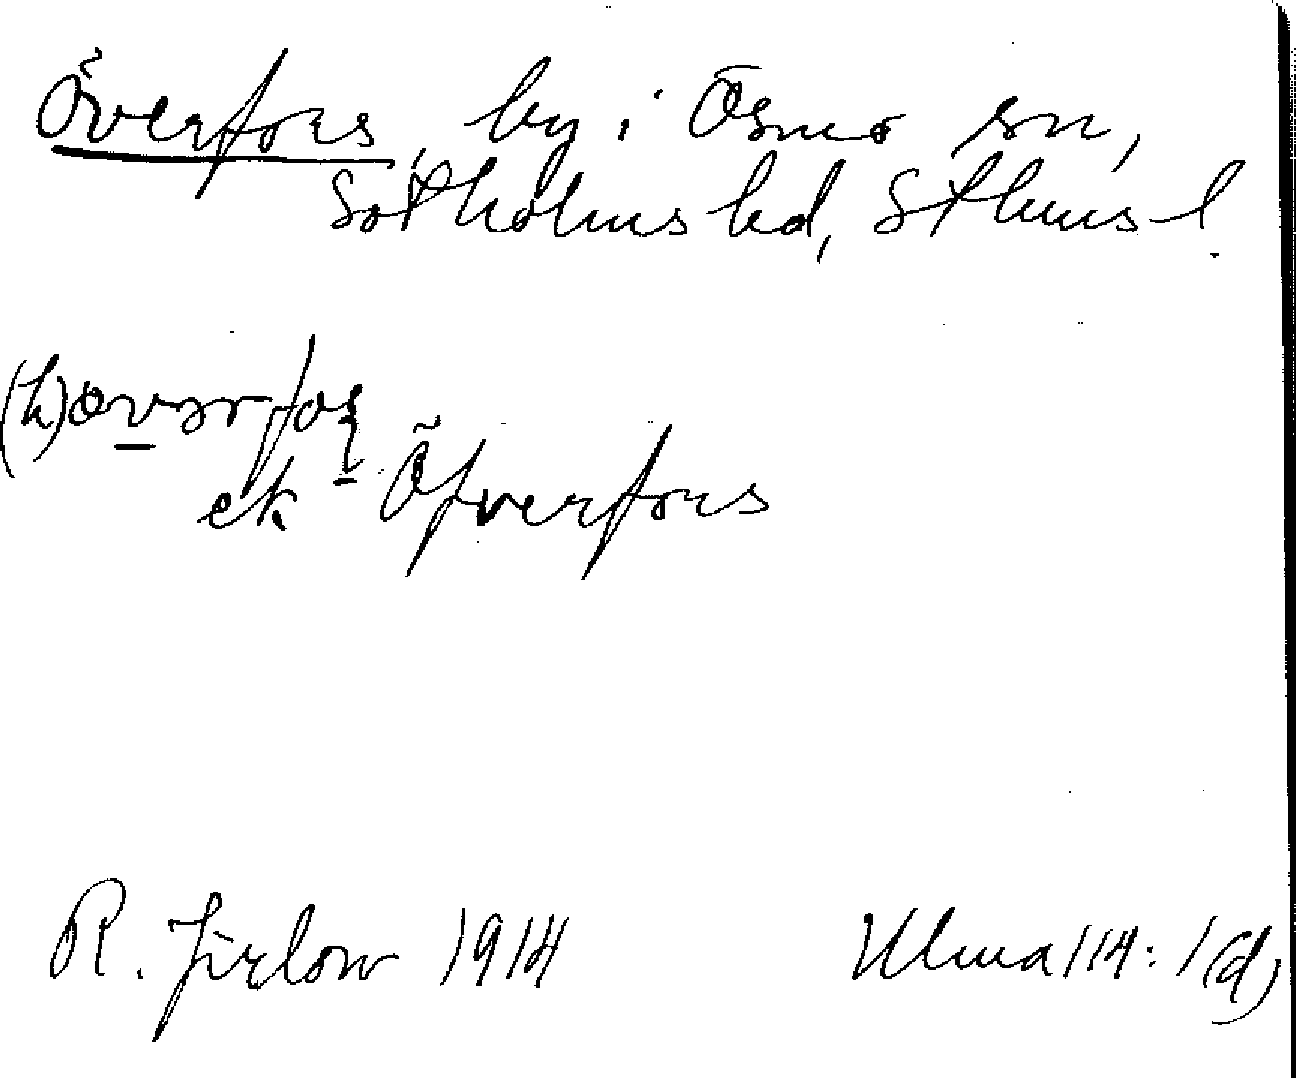 Överfors, by i Ösmo sn,
Sotholms hd, Sthms l.
ek Öfverfors
R. Jirlow 1914 Ulma 114:1(d)